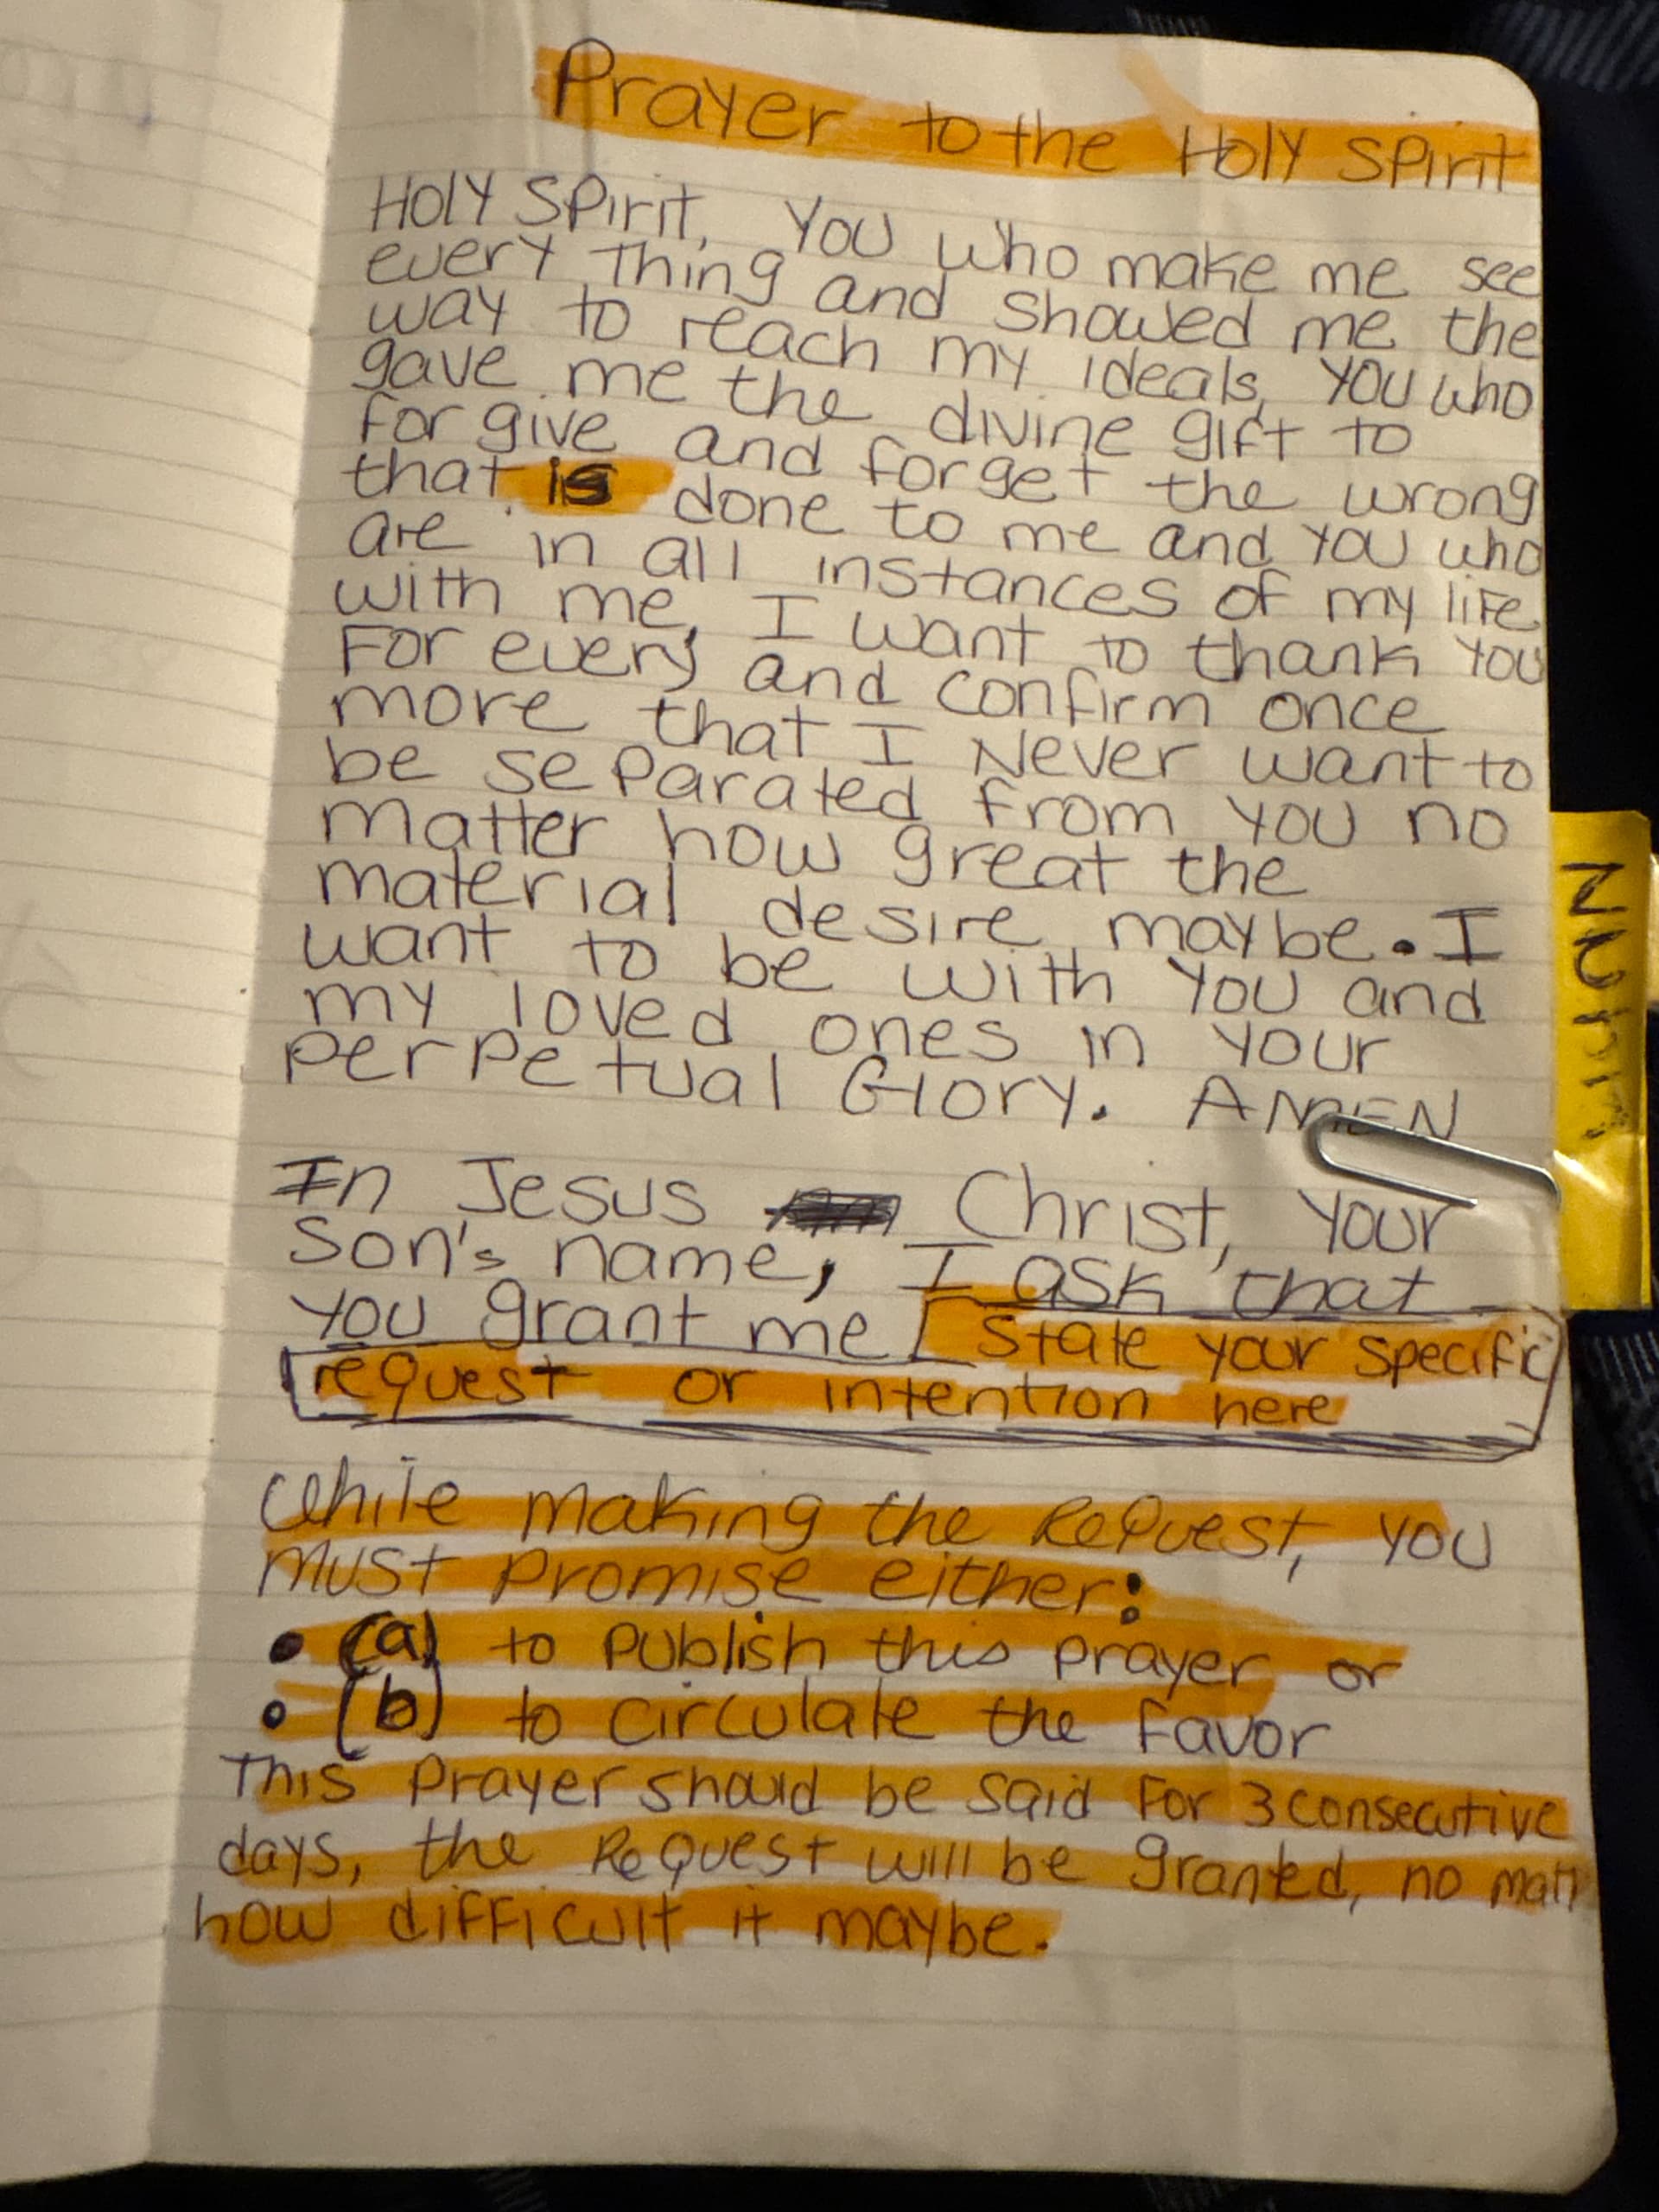 Prayer to the Holy Spirit
Holy Spirit, You who make me see
every thing and showed me the
way to reach my ideals, you who
gave me the divine gift to
forgive and forget the wrong
that is done to me and you who
are in all instances of my life
with me, I want to thank you
For every and confirm once
more that I Never want to
be separated from you no
matter how great the
material desire maybe. I
want to be with you and
my loved ones in your
perpetual Glory. AMEN
In Jesus Christ, your
Son's name, I ask that
you grant me [state your specific
request or intention here]
While making the Request, you
must promise either:
• (a) to publish this prayer or
• (b) to circulate the favor
This prayer should be said for 3 consecutive
days, the Request will be granted, no matt
how difficult it maybe.